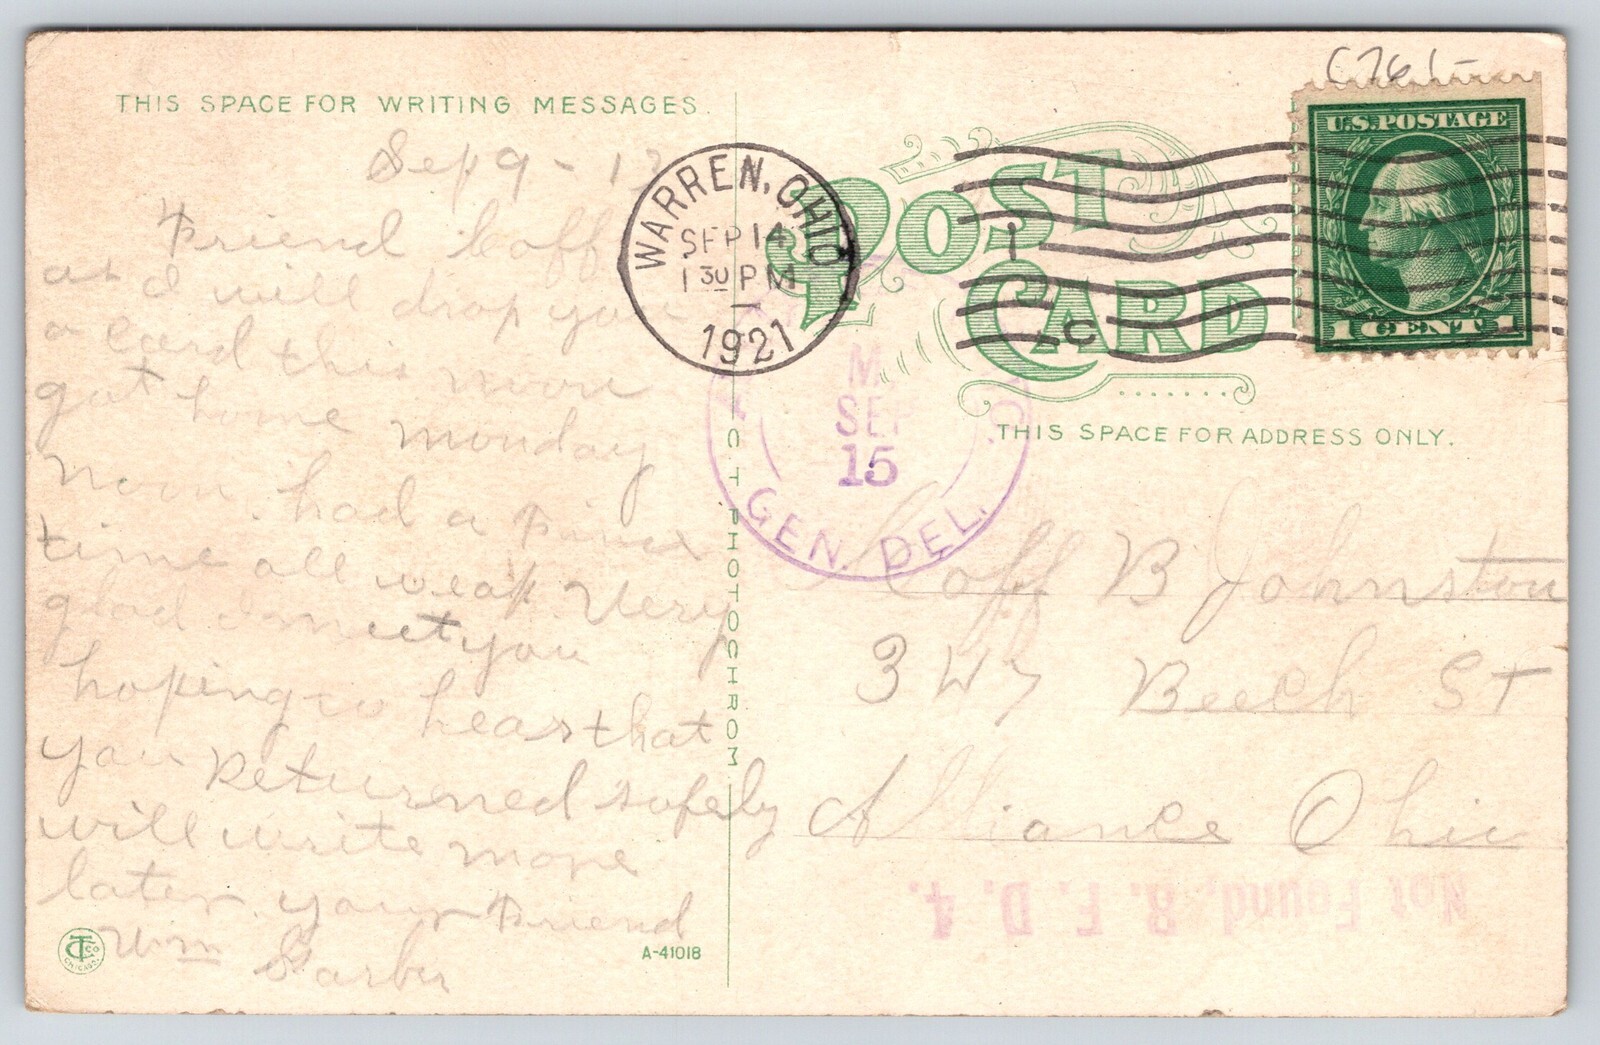 THIS SPACE FOR WRITING MESSAGES.
Sep 9 - 1
Friend Coff
as I will drop you
a card this noon
got home monday
noon. had a fine
time all week Very
glad I meet you
hoping to hear that
you Returned safely
will write more
later. your Friend
Wm Garber
A-41018
CT CO
CHICAGO.
C.T. PHOTOCHROM
WARREN, OHIO
SEP 14
1 30 PM
1921
POST CARD
C761-
U.S. POSTAGE
1 CENT 1
1
C
M.
SEP
15
GEN. DEL.
THIS SPACE FOR ADDRESS ONLY.
Coff B Johnston
347 Beech St
Alliance Ohio
Not Found, R. F. D. 4.